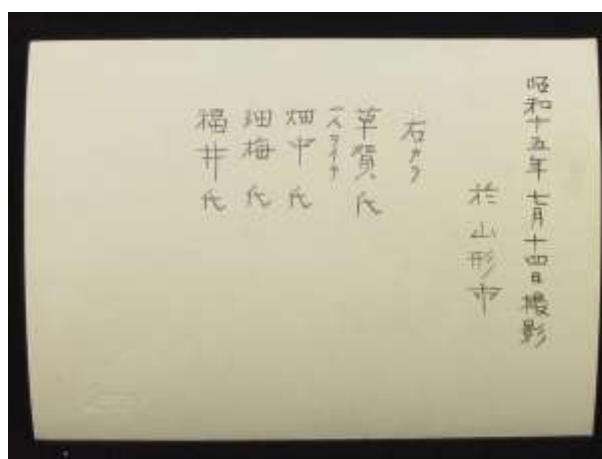 昭和十五年七月十四日撮影
於山形市
右カラ
草賀氏
畑中氏
畑梅氏
福井氏